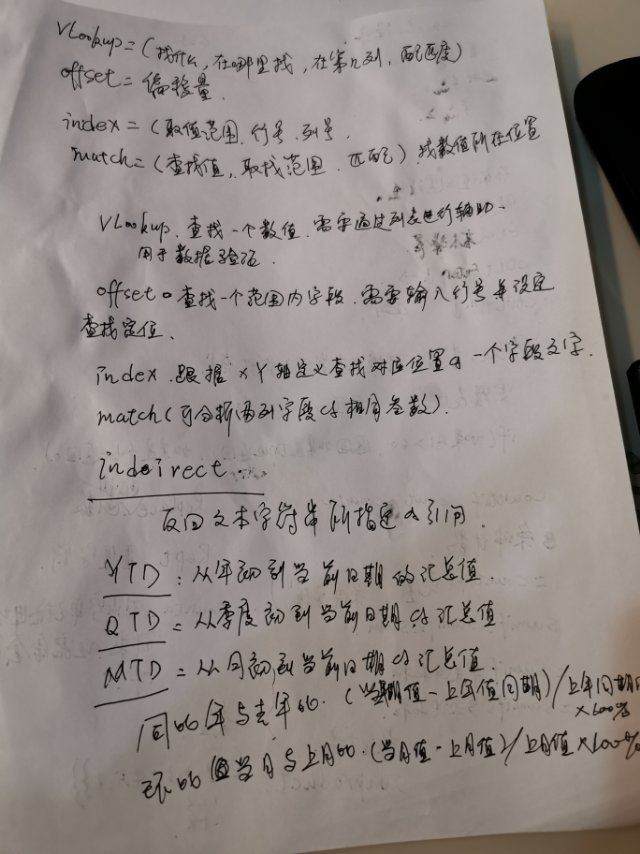 VLookup=(找什么,在哪里找,在第n列,匹配度)
offset=偏移量.
index=(取值范围.行号.列号.
match=(查找值,取找范围.匹配).找数值所在位置
VLookup.查找一个数值.需要通过列表进行辅助.
用于数据验证.
offset。查找一个范围内字段.需要输入行号并设定
查找定位.
index.跟据XY轴定义查找对应位置的一个字段文字.
match(可分析两列字段的相同参数).
indeirect
反回文本字符串所指定的引用.
YTD:从年初到当前日期的汇总值.
QTD=从季度初到当前日期的汇总值
MTD=从月初到当前日期的汇总值.
同比年与去年比.(当期值-上年值同期)/上年同期
×100%
环比 当月与上月比.(当月值-上月值)/上月值×100%